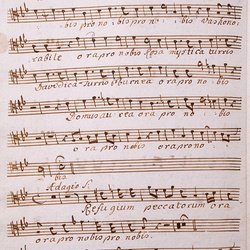 bis pro no : bis pro no : : bis Vas hono:
rabile ora pro nobis Rosa mystica turris
Davidica Turris eburnea ora pro no : bis
Domus aurea ora pro no : : bis
ora pro nobis ora pro no :
bis
Adagio S.
Refugium peccatorum ora
ora pro nobis pro nobis.